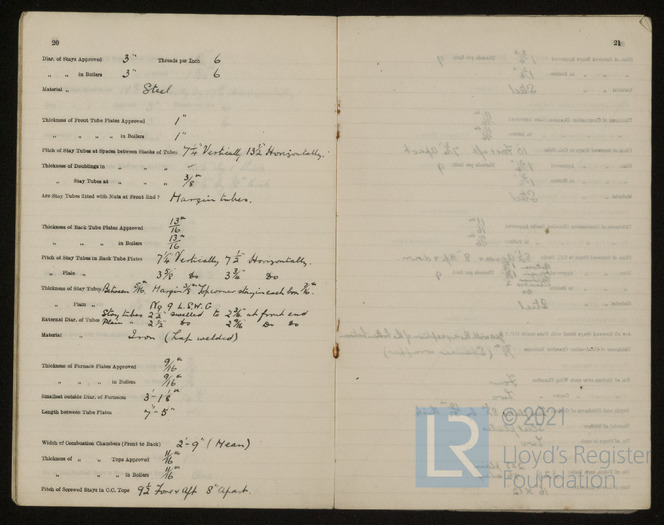 20
Diar. of Stays Approved 3" Threads per Inch 6
„ „ in Boilers 3" 6
Material „ Steel
Thickness of Front Tube Plates Approved 1"
„ „ „ „ in Boilers 1"
Pitch of Stay Tubes at Spaces between Stacks of Tubes 7¼" Vertically 13½" Horizontally.
Thickness of Doublings in „ „
„ Stay Tubes at „ „ 3/8"
Are Stay Tubes fitted with Nuts at Front End? Margin tubes.
Thickness of Back Tube Plates Approved 13/16"
„ „ „ „ in Boilers 13/16"
Pitch of Stay Tubes in Back Tube Plates 7¼" Vertically 7½" Horizontally.
„ Plain „ 3 5/8 Do 3¾ Do
Thickness of Stay Tubes Between 5/16" Margin 3/8" Top corner stays in each box 7/16".
„ Plain „ No 9 L.S.W.G
External Diar. of Tubes Stay tubes 2½" swelled to 2¾" at front end
Plain „ 2½" Do Do Do
Material „ Iron (Lap welded)
Thickness of Furnace Plates Approved 9/16"
„ „ „ in Boilers 9/16"
Smallest outside Diar. of Furnaces 3'-1 1/8"
Length between Tube Plates 7'-5"
Width of Combustion Chambers (Front to Back) 2'-9" (Mean)
Thickness of „ „ Tops Approved 11/16"
„ „ „ „ in Boilers 11/16"
Pitch of Screwed Stays in C.C. Tops 9½ Fore & Aft 8" Apart.
21
© 2021
LR
Lloyd's Register
Foundation